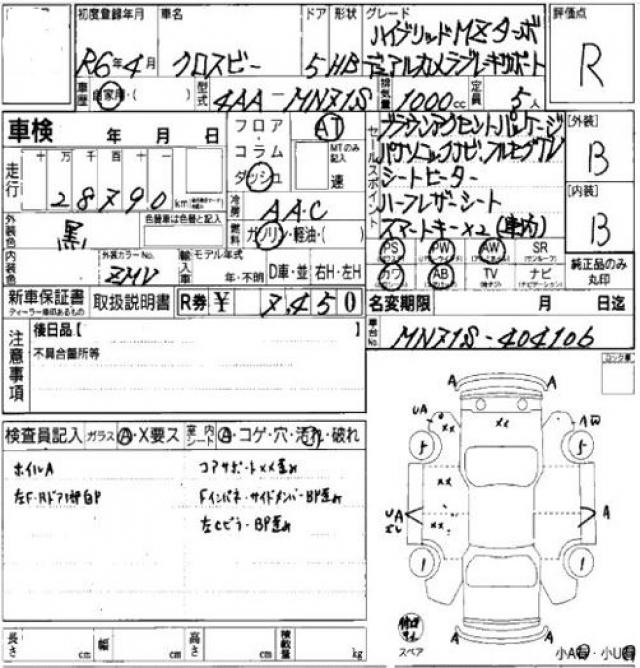 初度登録年月 車名 ドア 形状 グレード 評価点
R6年4月 クロスビー 5HB ハイブリッドMZターボ
デュアルカメラブレーキサポート R
車歴 自家用・( ) 型式 4AA-MN71S 排気量 1000cc 定員 5人
車検 年 月 日 フロア・コラム ダッシュ AT MTのみ記入 速
セールスポイント ブラウンアクセントパッケージ [外装] B
パナソニックナビ、フルセグTV
シートヒーター
ハーフレザーシート [内装] B
スマートキー×2(車内)
走行 十万千百十一 28790km
冷房 AAC
外装色 黒 色替車は色替と記入 燃料 ガソリン・軽油・( )
内装色 外装カラーNo. ZMV 輸入車 モデル年式 年・不明 D車・並 右H・左H
PS PW AW SR
カワ AB TV ナビ 純正品のみ丸印
新車保証書 取扱説明書 R券 ¥ 7,450 名変期限 月 日迄
ディーラー車印あるもの
車台No. MN71S-404106
注意事項 後日品【 】
不具合箇所等
検査員記入 ガラス A・X要ス 室内シート A・コゲ・穴・汚れ・破れ
ホイルA コアサポートXX歪み
左F・Rドア内部白P Fインパネ・サイドメンバーBP歪み
左Cピラー BP歪み
A A
UA XX XX AW
5 5
XX
UA XX A
1 1
A A
スペア 小A・小U
長さ cm 幅 cm 高さ cm 積載量 kg